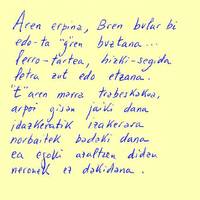 Aren erpina, Bren bular bi
edo-ta "g"ren buztana...
lerro-tartea, hizki-segida
letra zut edo etzana.
"t"aren marra trabeskakua,
arpoi gisan jaiki dana
idazkeratik izakerara
norbaitek badaki dana
ea egoki azaltzen didan
neronek ez dakidana.